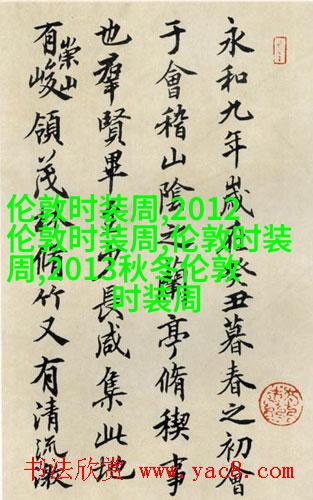 永和九年歲在癸丑暮春之初會
于會稽山陰之蘭亭脩稧事
也羣賢畢至少長咸集此地
有崇山峻領茂林脩竹又有清流激
伦敦时装周,2012
伦敦时装周,伦敦时装
周,2013秋冬伦敦
时装周
书法欣赏 www.yac8.com